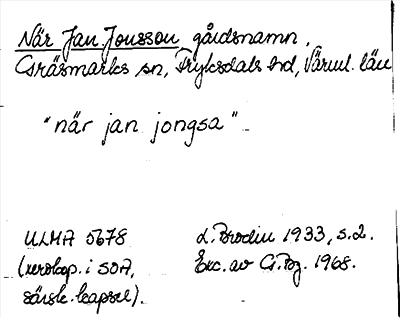 När Jan Jonsson gårdsnamn,
Gräsmarks sn, Fryksdals hd, Värml. län
"när jan jongsa"
ULMA 5678 L. Brodin 1933, s. 2.
(xerokop. i SOA, Exc. av G.Bg. 1968.
särsk. kapsel).